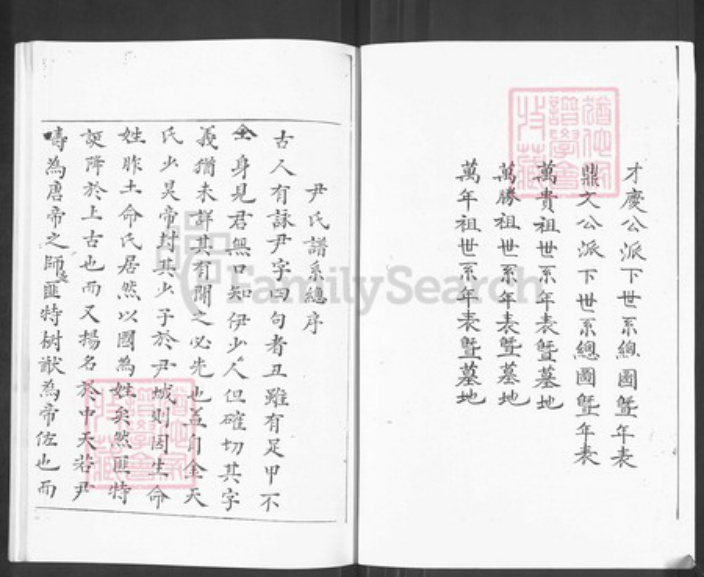 才慶公派下世系總圖暨年表
鼎文公派下世系總圖暨年表
萬貴祖世系年表暨墓地
萬勝祖世系年表暨墓地
萬年祖世系年表暨墓地
尹氏譜系總序
古人有詠尹字四句者丑雖有足甲不
全身見君無口知伊少人但確切其字
義猶未詳其有開之必先也蓋自金天
氏少昊帝封其少子於尹城則因生命
姓胙土命氏居然以國為姓矣然匪特
誕降於上古也而又揚名於中天若尹
壽為唐帝之師匪特樹猷為帝佐也而
FamilySearch